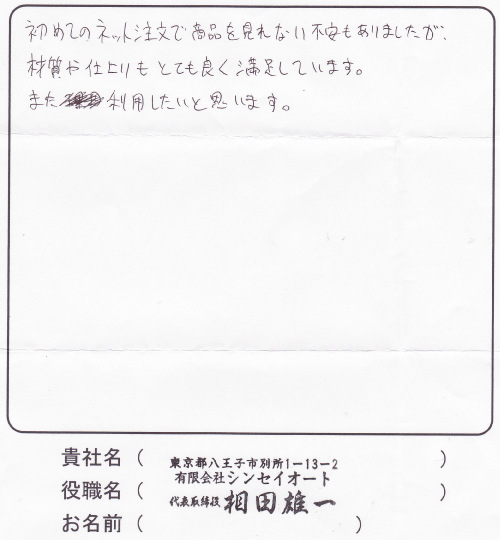 初めてのネット注文で商品を見れない不安もありましたが、
材質や仕上りもとても良く満足しています。
また利用したいと思います。
貴社名（　　　）
東京都八王子市別所1-13-2
有限会社シンセイオート
役職名（　　　）
代表取締役 相田雄一
お名前（　　　）